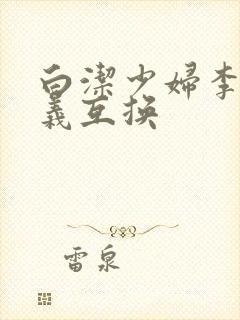 白潔少婦李
義互换
雷泉